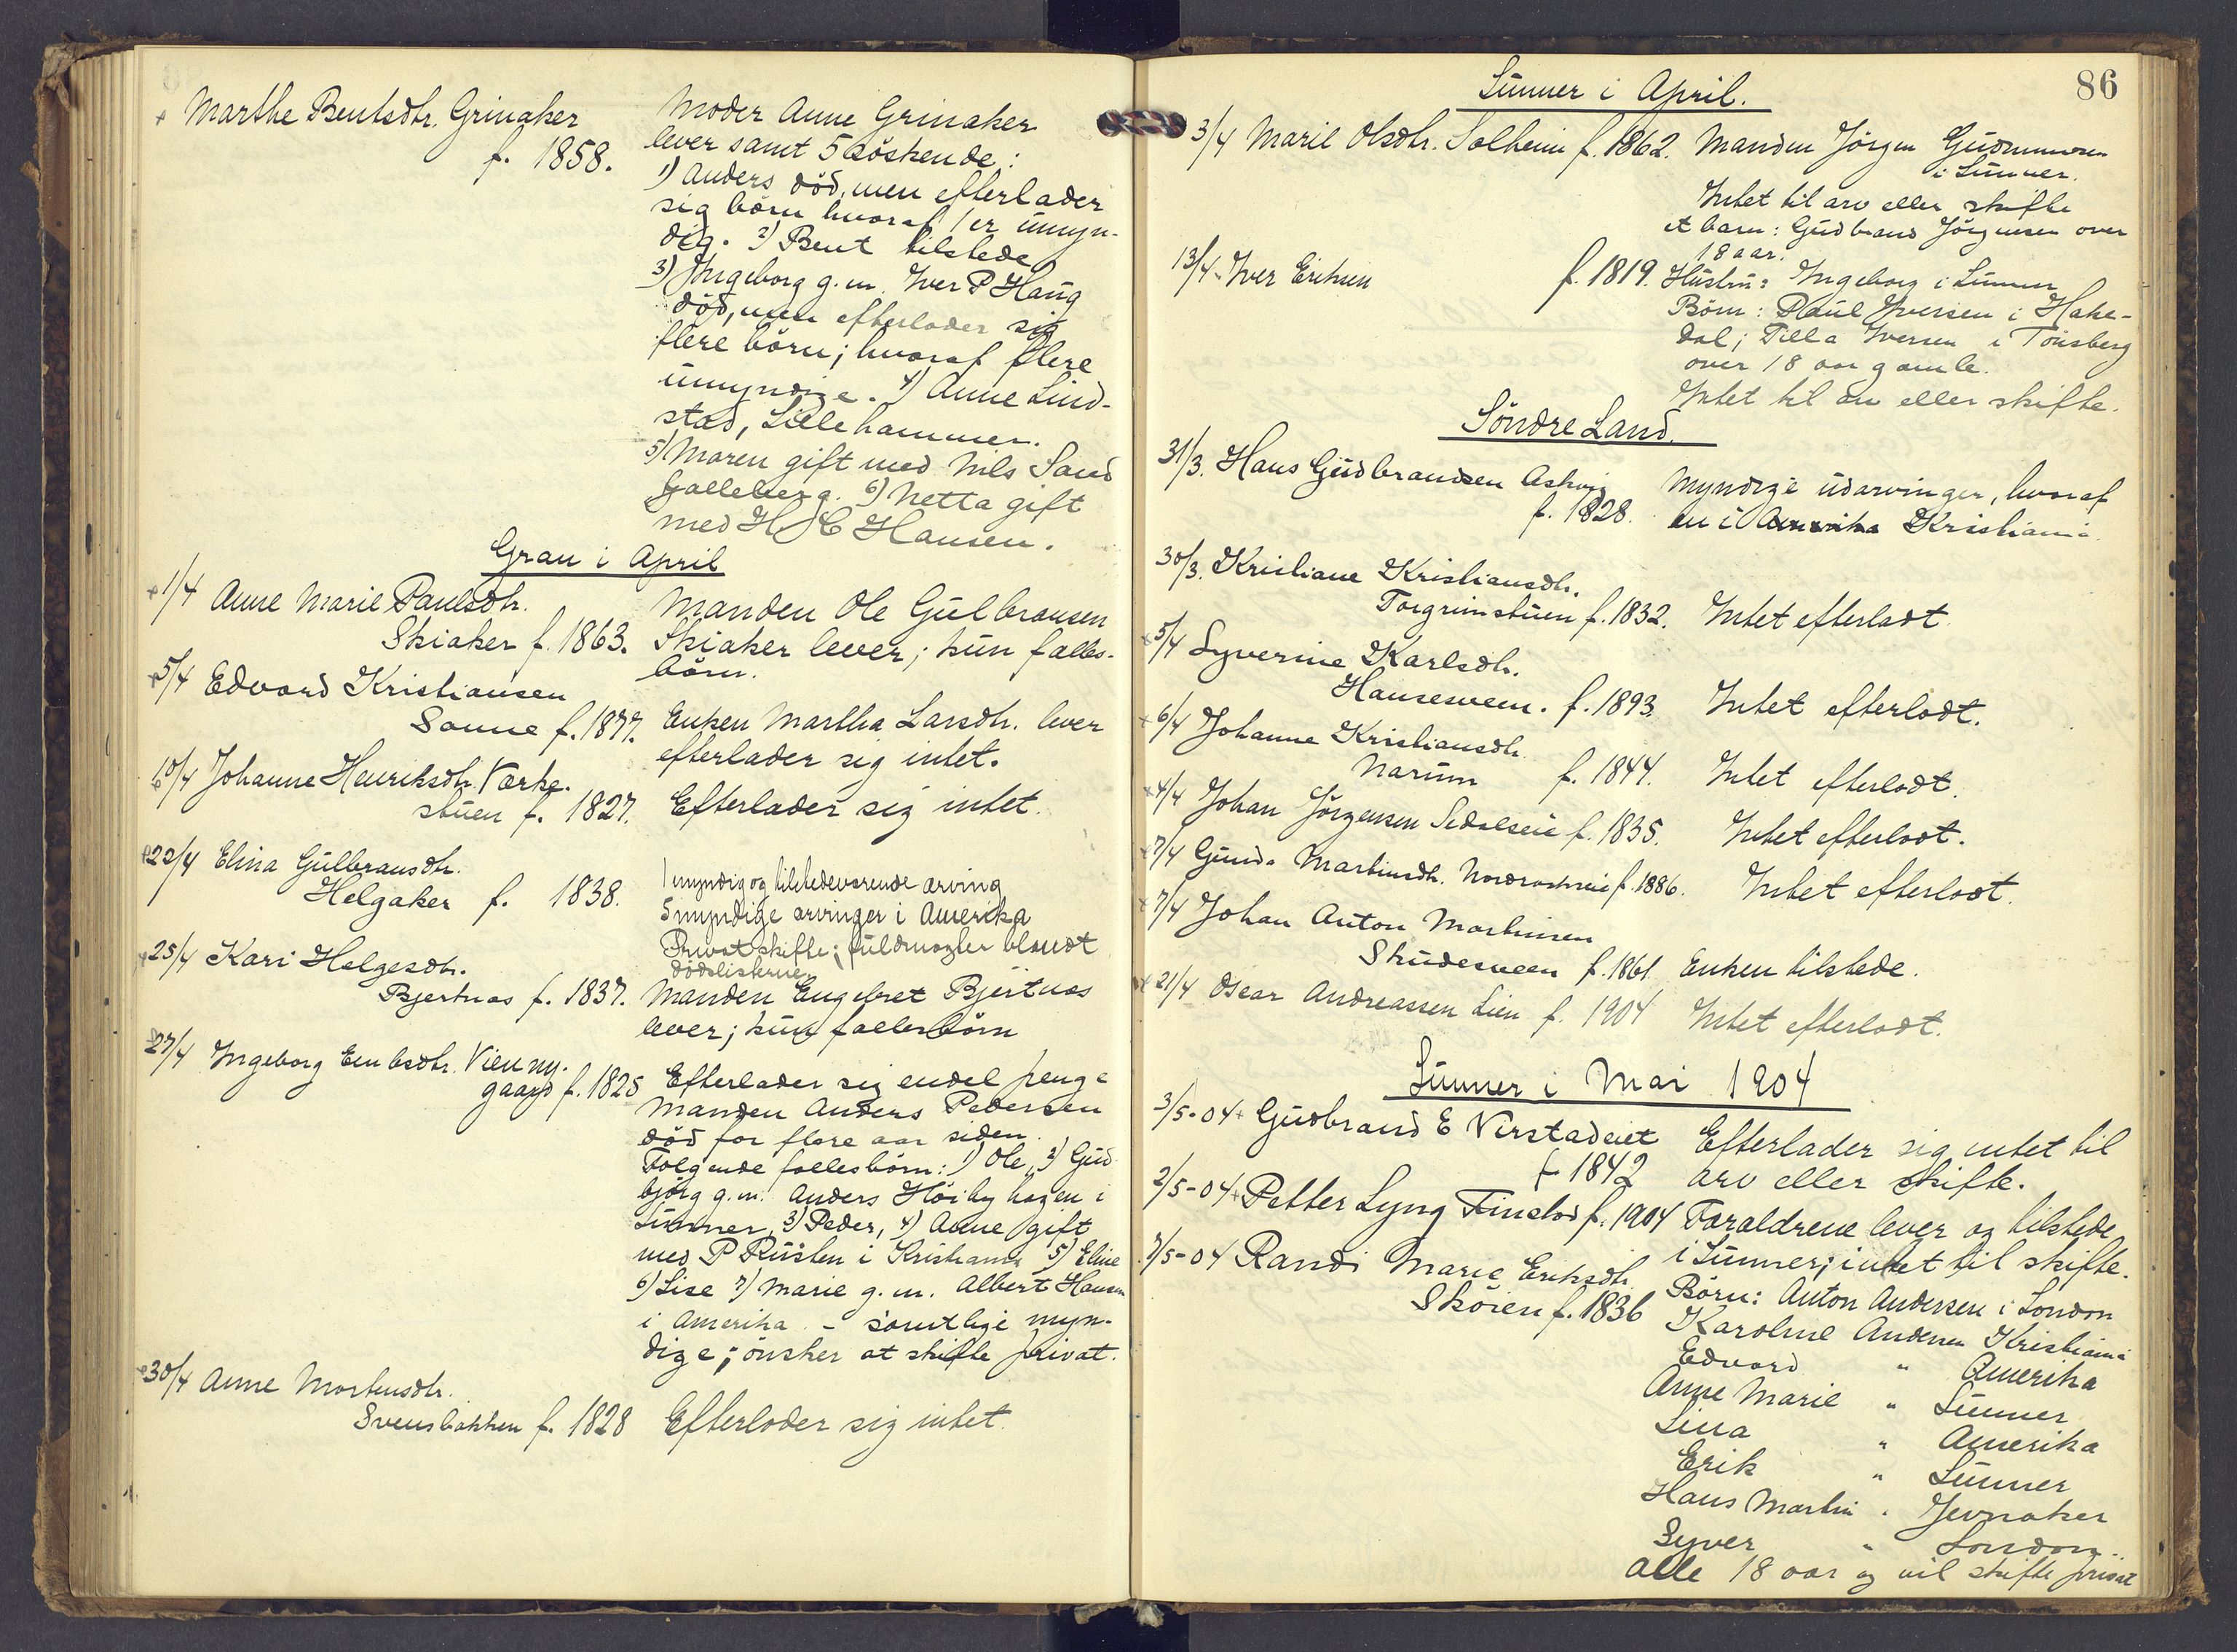 Marthe Bentsdtr. Grinaker
f. 1858.
Moder Anne Grinaker
lever samt 5 söskende:
1) Anders död, men efterlader
sig börn hvoraf 1 er umyn-
dig. 2) Bent tilstede
3) Ingeborg g.m. Iver P Haug
död, men efterlader sig
flere börn; hvoraf flere
umyndige. 4) Anne Lind-
stad, Lillehammer.
5) Maren gift med Nils Sand
Galleberg. 6) Netta gift
med H C Hansen.
Gran i April
1/4 Anne Marie Paulsdtr.
Skiaker f. 1863.
Manden Ole Gulbransen
Skiaker lever; kun fælles-
börn.
5/4 Edvard Kristiansen
Sonne f. 1877.
Enken Martha Larsdtr. lever
efterlader sig intet.
10/4 Johanne Henriksdtr. Værke-
stuen f. 1827.
Efterlader sig intet.
22/4 Elina Gulbransdtr.
Helgaker f. 1838.
1 myndig og tilstedeværende arving
5 myndige arvinger i Amerika
Privat skifte; fuldmagter blandt
dödslisterne
25/4 Kari Helgesdtr.
Bjertnæs f. 1837.
Manden Engebret Bjertnæs
lever; kun fællesbörn
27/4 Ingeborg Embsdtr. Vien ny-
gaard f. 1825
Efterlader sig endel penge
Manden Anders Pedersen
död for flere aar siden.
Følgende fællesbörn: 1) Ole, 2) Gud-
björg g.m. Anders Höibyhagen i
Lunner, 3) Peder, 4) Anne gift
med P Rusten i Kristiania 5) Eline
6) Lise 7) Marie g.m. Albert Hansen
i Amerika - samtlige myn-
dige; önsker at skifte privat.
30/4 Anne Mortensdtr.
Svensbakken f. 1828
Efterlader sig intet.
86
Lunner i April.
3/4 Marie Olsdtr. Solheim f. 1862. Manden Jörgen Gudmundsen
i Lunner.
Intet til arv eller skifte
et barn: Gudbrand Jörgensen over
18 aar.
13/4 - Iver Eriksen f. 1819. Hustru: Ingeborg i Lunner
Börn: Paul Iversen i Hake-
dal; Tilla Iversen i Tönsberg
over 18 aar gamle.
Intet til arv eller skifte.
Söndre Land.
31/3. Hans Gudbrandsen Askvig
f. 1828.
Myndige udarvinger, hvoraf
en i Amerika Kristiania.
30/3. Kristiane Kristiansdtr.
Torgrimstuen f. 1832. Intet efterladt.
5/4 Syverine Karlsdtr.
Hansesveen. f. 1893. Intet efterladt.
6/4 Johanne Kristiansdtr.
Narum f. 1844. Intet efterladt.
4/4 Johan Jörgensen Sedalseie f. 1835. Intet efterladt.
7/4 Gunda Martinsdtr. f. 1886. Intet efterladt.
7/4 Johan Anton Martinsen
Skudesveen f. 1861. Enken tilstede.
21/4 Oscar Andreassen Lien f. 1904 Intet efterladt.
Lunner i Mai 1904
3/5-04 Gudbrand E Virstadeiet
f. 1842
Efterlader sig intet til
arv eller skifte.
2/5-04 Petter Lyng Finstad f. 1904 Forældrene lever og tilstede
i Lunner; intet til skifte.
7/5-04 Randi Marie Eriksdtr.
Sköien f. 1836
Börn: Anton Andersen i London
Karoline Andersen Kristiania
Edvard " Amerika
Anne Marie " Lunner
Lina " Amerika
Erik " Lunner
Hans Martin " Jevnaker
Syver " London..
alle 18 aar og vil skifte privat